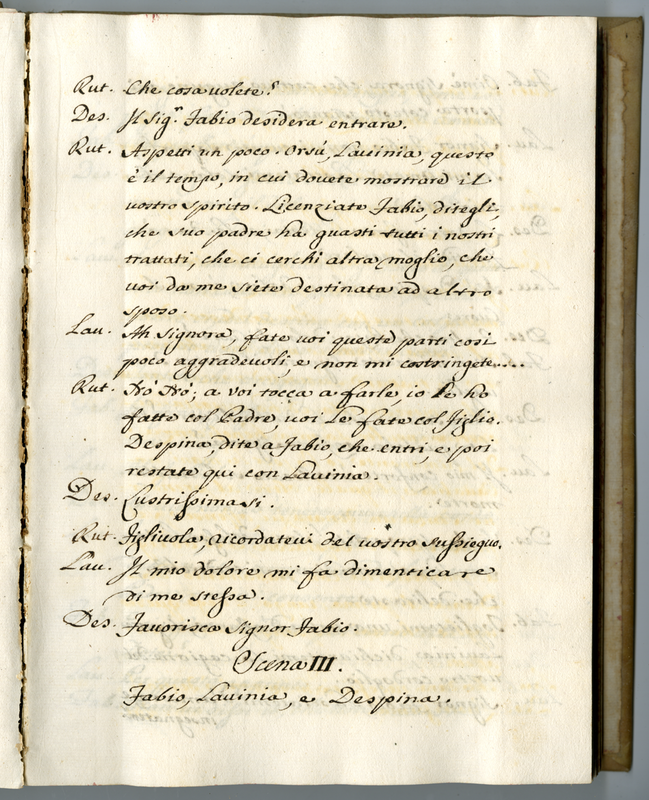 Rut. Che cosa volete?
Des. Il Sig.r Fabio desidera entrare.
Rut. Aspetti un poco. Orsú, Lavinia, questo
è il tempo, in cui dovete mostrare il
vostro spirito. Licenziate Fabio, ditegli,
che suo padre ha guasti tutti i nostri
trattati, che ci cerchi altra moglie, che
voi da me siete destinata ad altro
sposo.
Lau. Ah Signora, fate voi queste parti così
poco aggradevoli, e non mi costringete....
Rut. Nò Nò; a voi tocca a farle, io le ho
fatte col Padre, voi le fate col Figlio.
Despina, dite a Fabio, che entri, e poi
restate qui con Lavinia.
Des. Lustrissima si.
Rut. Figliuola, ricordatevi del vostro sussiequo.
Lau. Il mio dolore mi fa dimenticare
di me stessa.
Des. Favorisca Signor Fabio.
Scena III.
Fabio, Lavinia, e Despina.